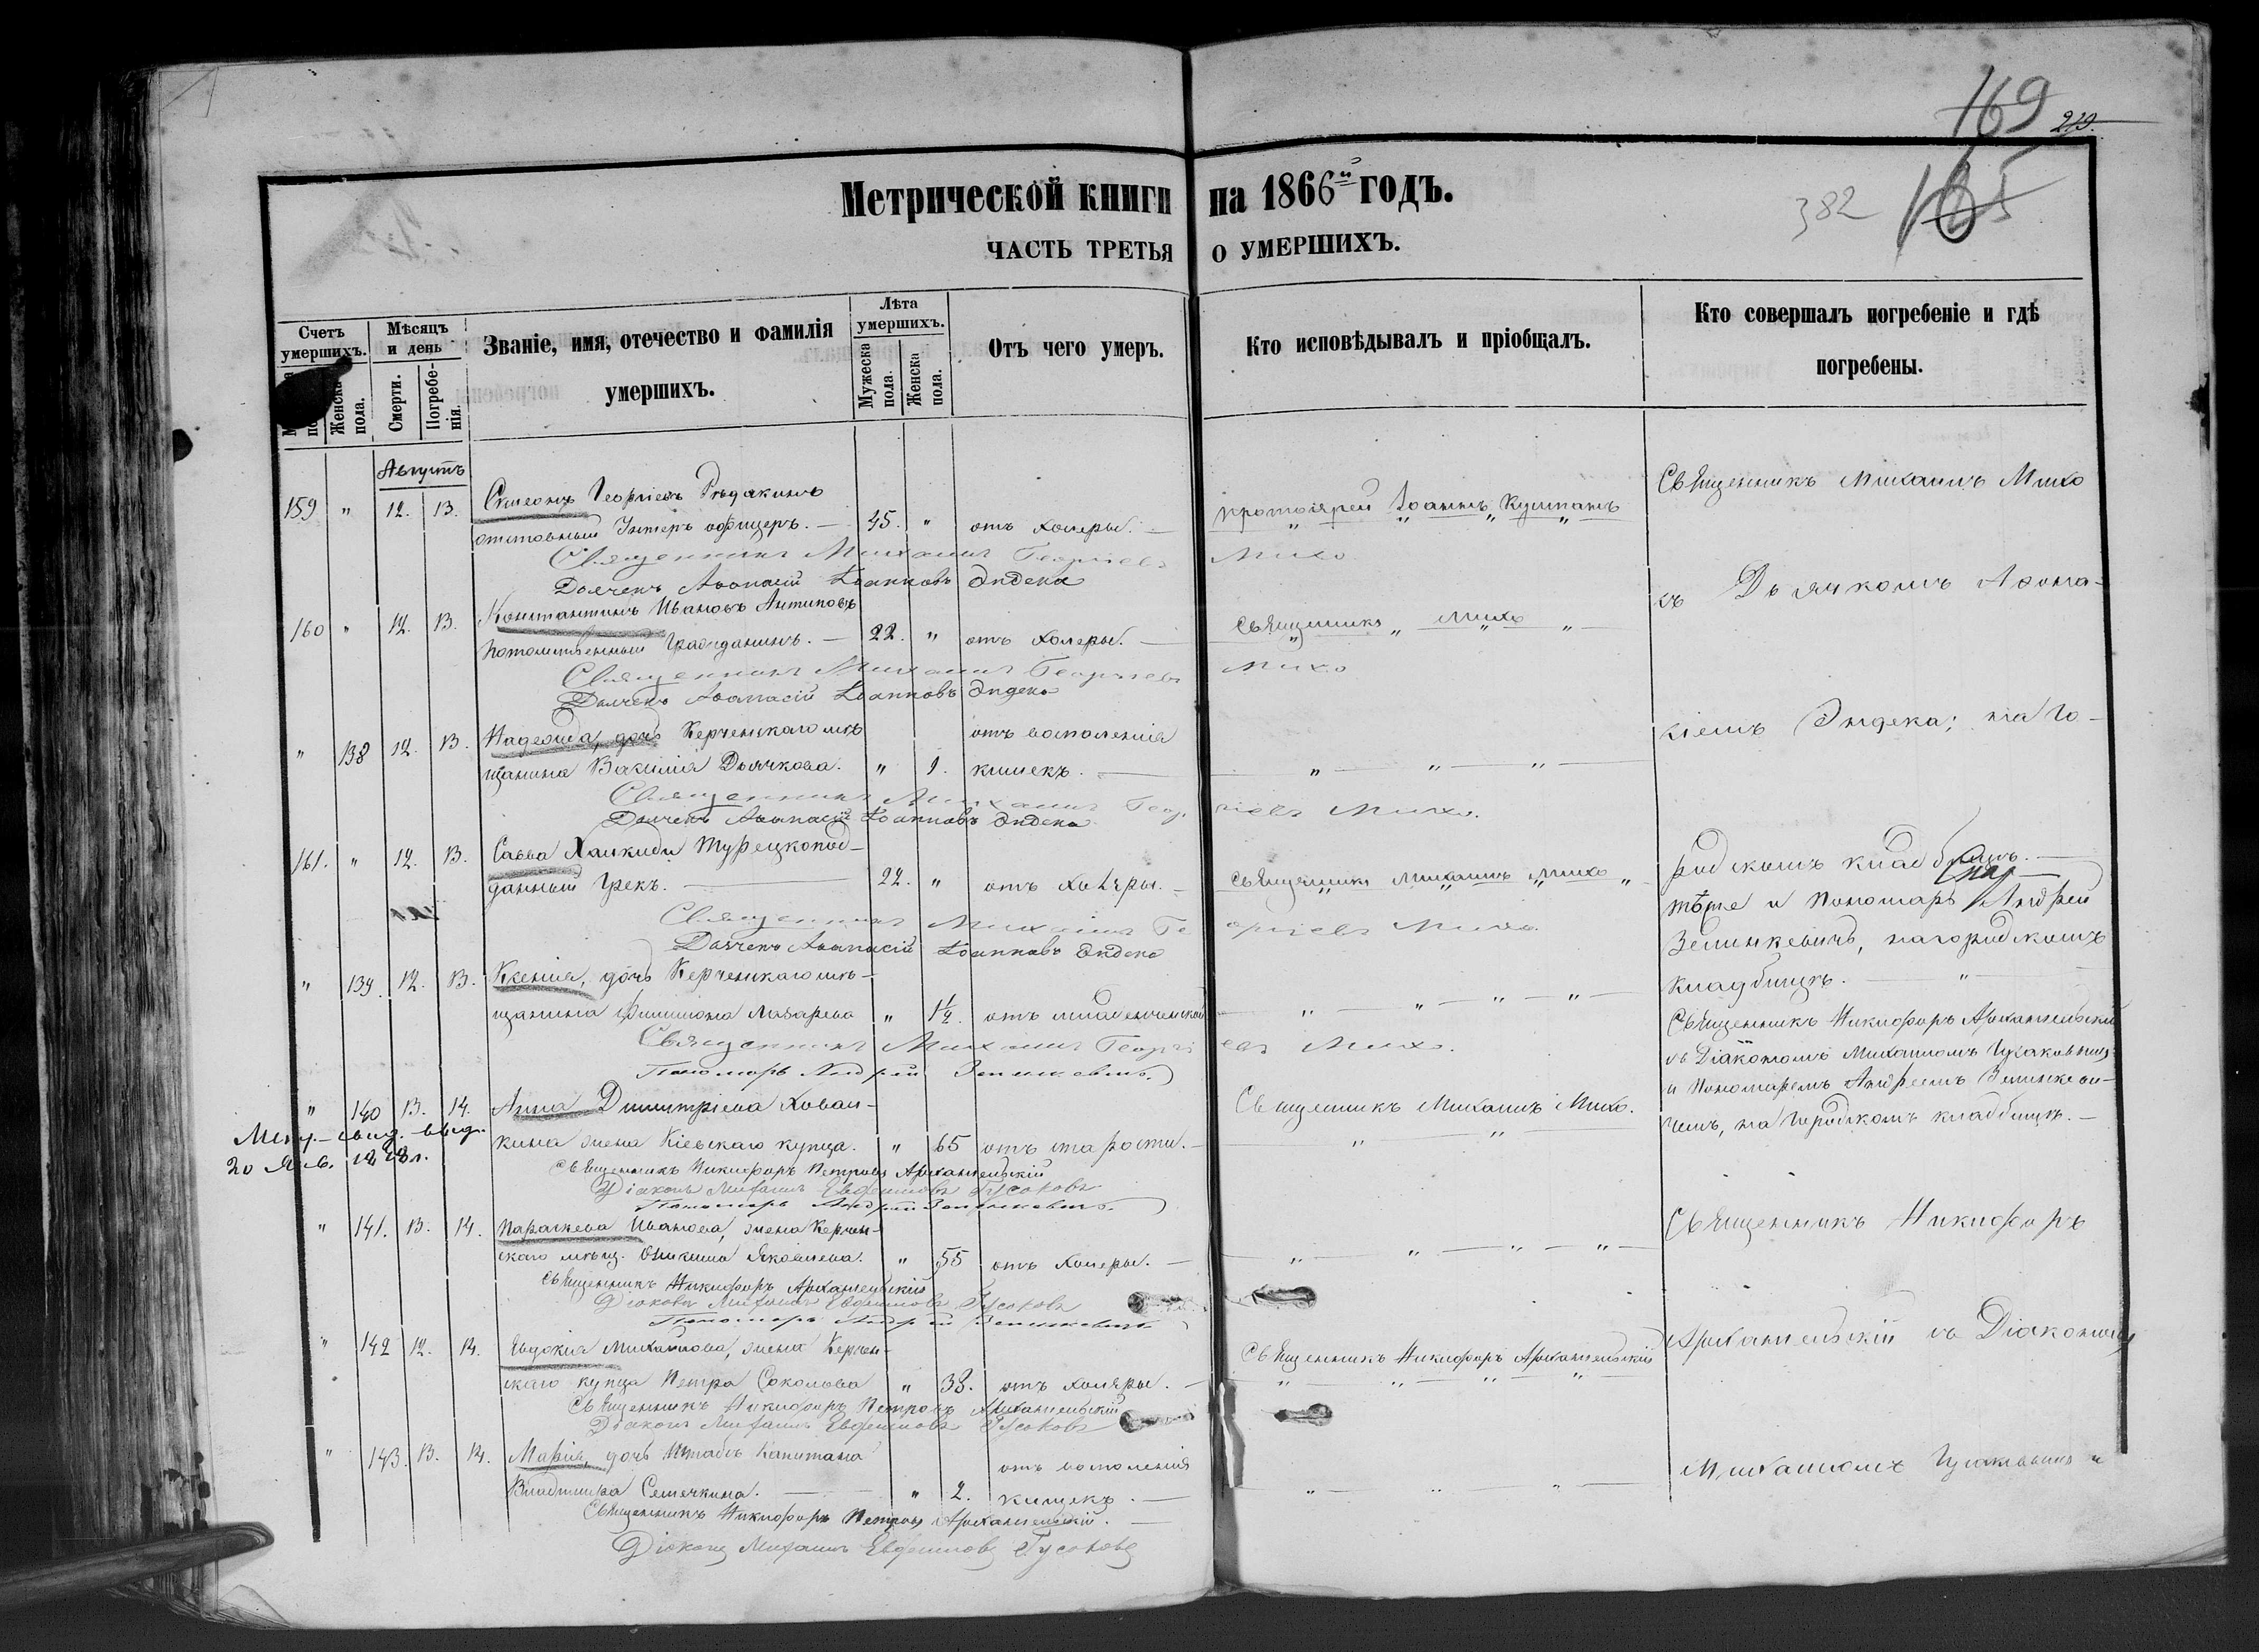 169
219.
165
382
Метрической книги на 1866й годъ.
ЧАСТЬ ТРЕТЬЯ О УМЕРШИХЪ.
Счетъ умершихъ.
Женска пола.
Мѣсяцъ и день
Смерти.
Погребенія.
Званіе, имя, отечество и фамилія умершихъ.
Лѣта умершихъ.
Мужеска пола.
Женска пола.
Отъ чего умеръ.
Кто исповѣдывалъ и пріобщалъ.
Кто совершалъ погребеніе и гдѣ погребены.
Августъ
159 " 12. 13. Симеонъ Георгіевъ
отставный Унтеръ офицеръ. — 45. " отъ холеры. — протоіерей Іоаннъ Кушпанъ
Священникъ Михаилъ Георгіевъ Михо
Дьячекъ Аѳанасій Іоанновъ Эндека
160 " 12. 13. Константинъ Ивановъ Антиповъ
потомственный Гражданинъ. — 22. " отъ холеры. — Священникъ Михо
Священникъ Михаилъ Георгіевъ Михо
Дьячекъ Аѳанасій Іоанновъ Эндека
" 138 12. 13. Надежда, дочь Керченскаго мѣ отъ воспаленія
щанина Василія Дьячкова. " 1. кишекъ. —
Священникъ Михаилъ Георгіевъ Михо.
Дьячекъ Аѳанасій Іоанновъ Эндека
161. " 12. 13. Савва Турецкопод-
данный Грекъ. — 22. " отъ холеры. — Священникъ Михаилъ Михо
Священникъ Михаилъ Георгіевъ Михо
Дьячекъ Аѳанасій Іоанновъ Эндека
" 139. 12. 13. Ксенія, дочь Керченскаго мѣ-
щанина Филимона Лазарева " 1½. отъ младенческой
Священникъ Михаилъ Георгіевъ Михо.
Пономарь Андрей Зелинкевичъ.
" 140 13. 14. Анна Димитріева Ховал-
кина жена Кіевскаго купца. " 65 отъ старости. — Священникъ Михаилъ Михо.
Метр. – свид. – выд.
20 Янв.
Священникъ Никифоръ Петровъ Архангельскій
Діаконъ Михаилъ Евфимовъ Гусаковъ
Пономарь Андрей Зелинкевичъ.
" 141. 13. 14. Параскева Иванова, жена Керчен-
скаго мѣщ. Яковлева. " 55 отъ холеры. —
Священникъ Никифоръ Архангельскій
Діаконъ Михаилъ Евфимовъ Гусаковъ
Пономарь Андрей Зелинкевичъ
" 142 12. 14. Евдокія Михайлова, жена Керчен-
скаго купца Петра Соколова " 38. отъ холеры. — Священникъ Никифоръ Архангельскій
Священникъ Никифоръ Петровъ Архангельскій
Діаконъ Михаилъ Евфимовъ Гусаковъ
" 143. 13. 14. Марія, дочь Штабсъ Капитана отъ воспаленія
Владиміра Семечкина. " 2. кишекъ. —
Священникъ Никифоръ Петровъ Архангельскій. —
Діаконъ Михаилъ Евфимовъ Гусаковъ
Священникъ Михаилъ Михо
съ Дьячкомъ Аѳана-
сіемъ Эндека; на Го-
родскомъ кладбищѣ. —
тѣже и Пономарь Андрей
Зелинкевичъ, на городскомъ
кладбищѣ. — " —
Священникъ Никифоръ Архангельскій
съ Діакономъ Михаиломъ Гусаковымъ
и Пономаремъ Андреемъ Зелинкеви-
чемъ, на Городскомъ кладбищѣ. —
Священникъ Никифоръ
Архангельскій съ Діакономъ
Михаиломъ Гусаковымъ и